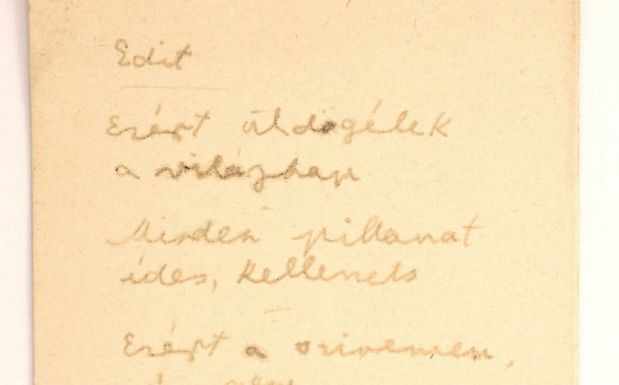 Edit
Ezért üldögélek
a világban
Minden pillanat
édes, kellemes
Ezért a szivemen,